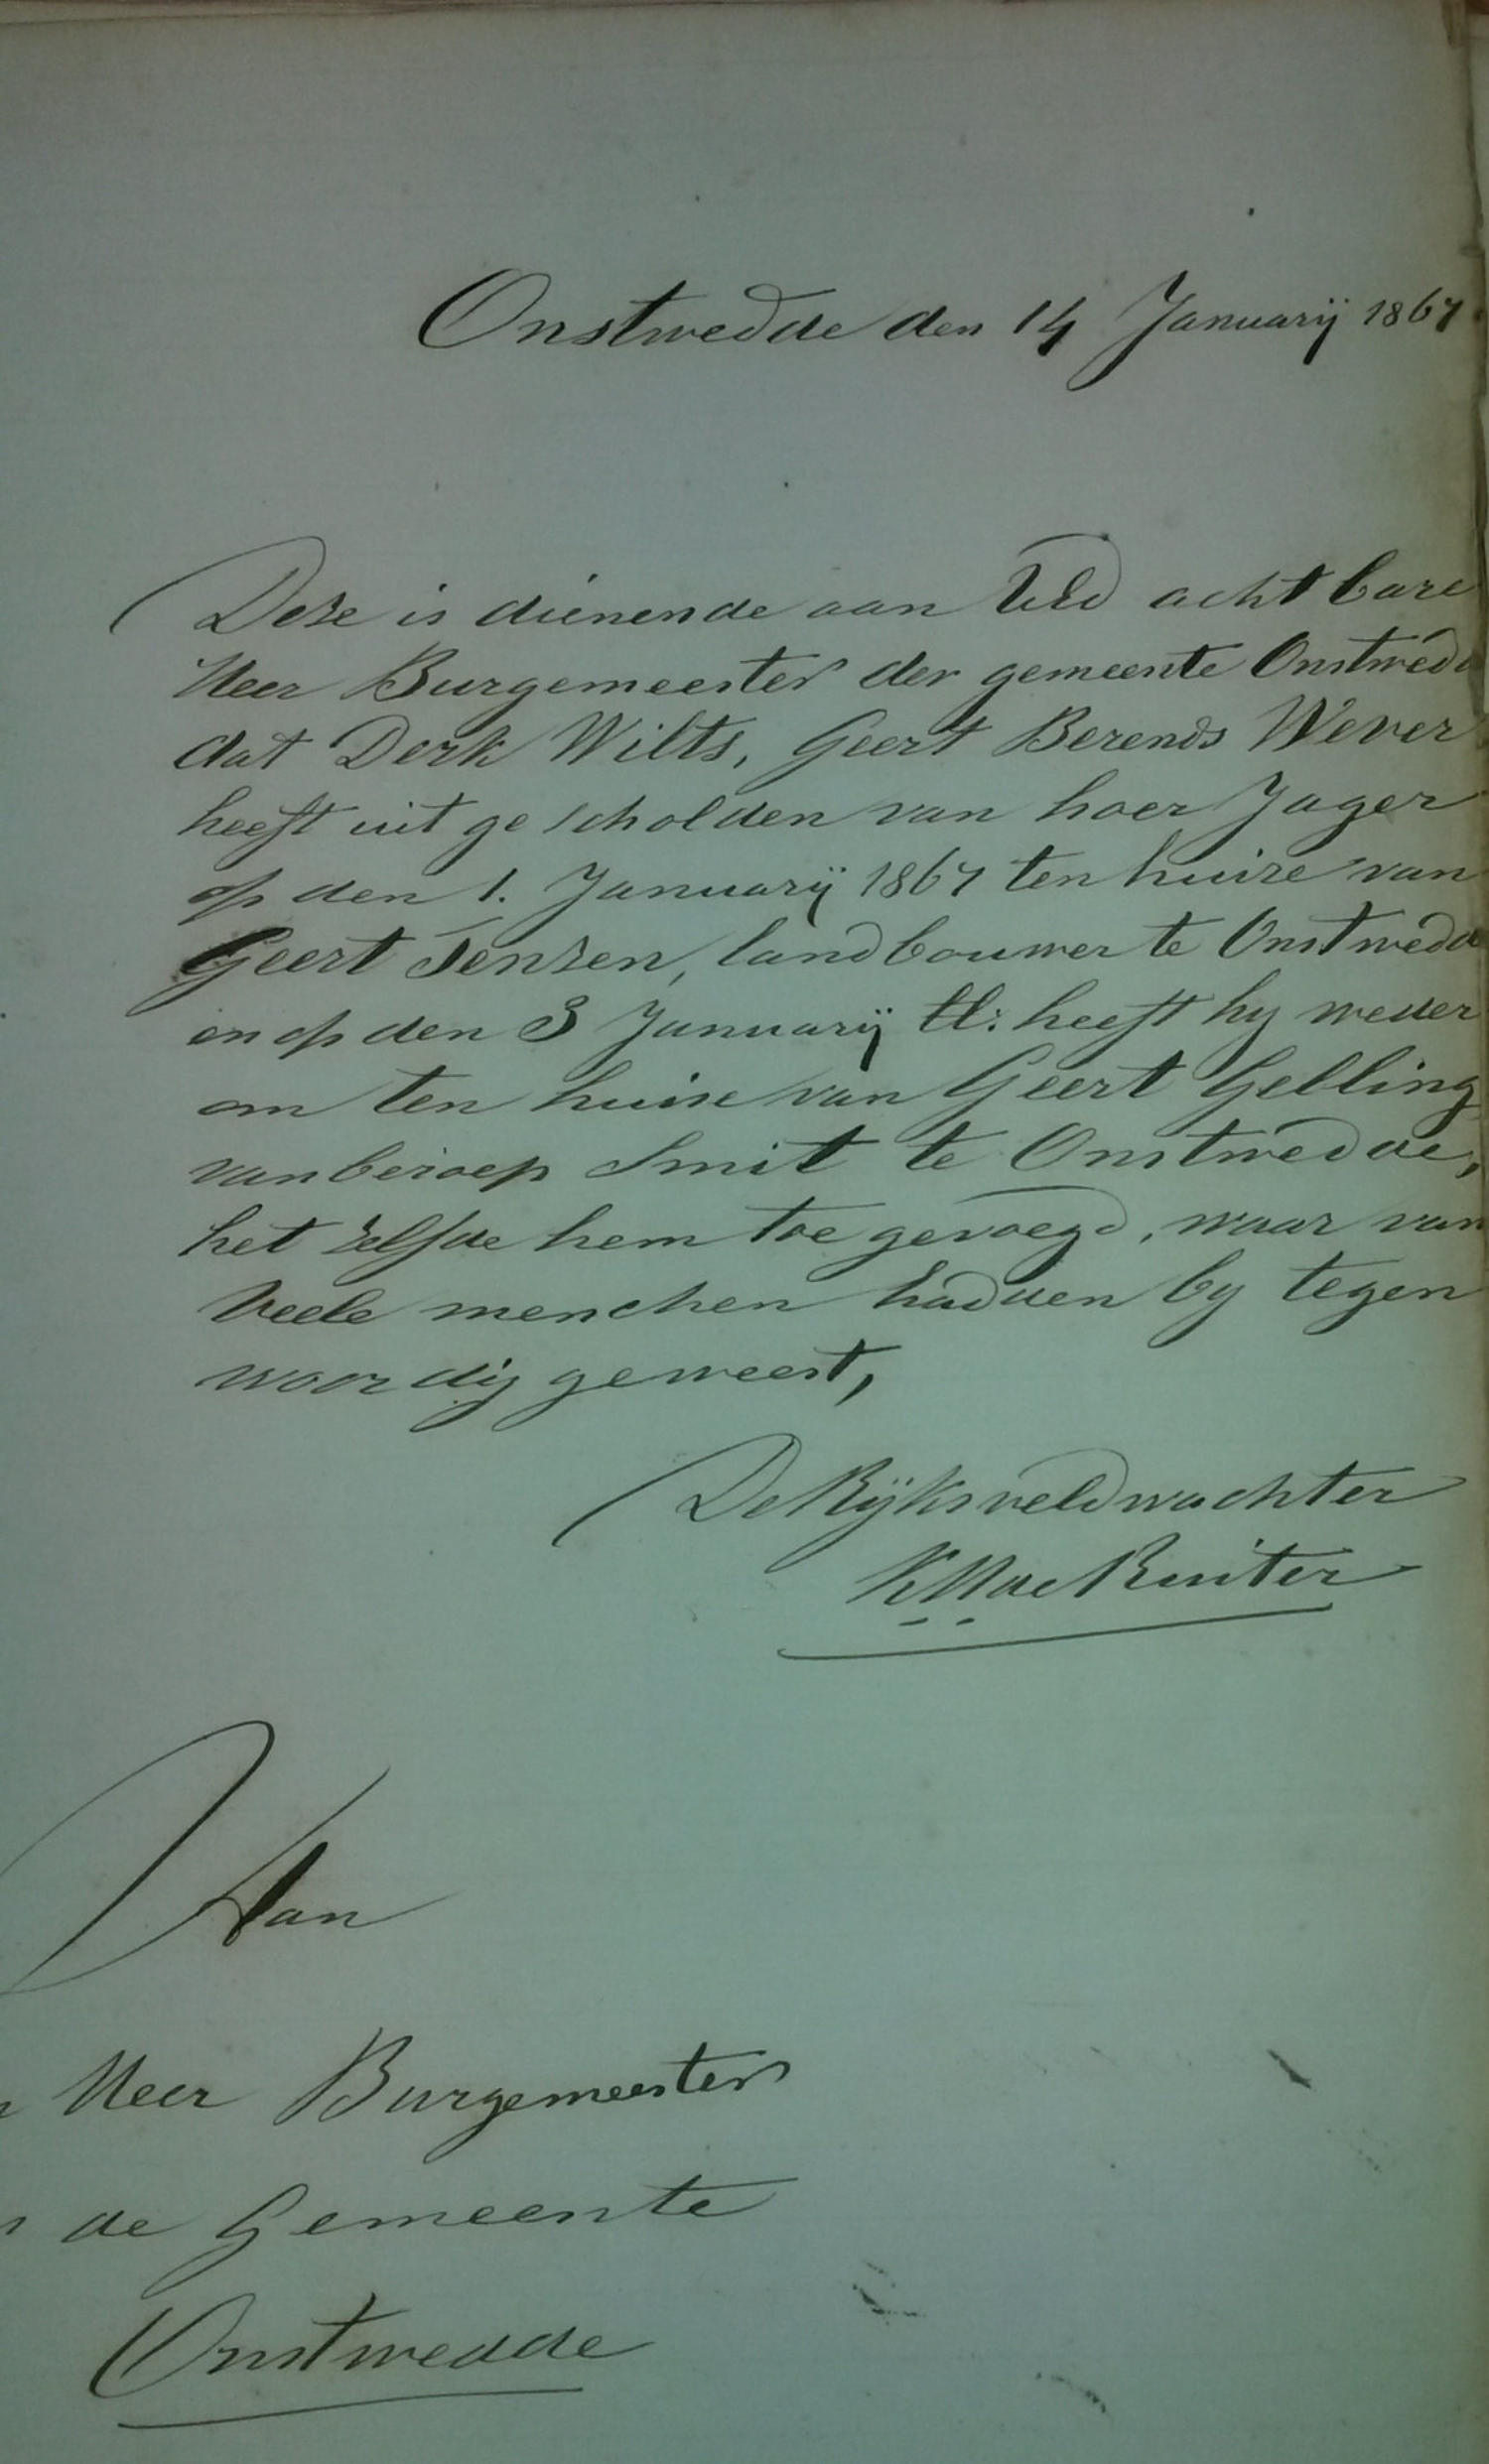 Onstwedde den 14 Januarij 1867
Deze is dienende aan UEd achtbare
Heer Burgemeester der gemeente Onstwedde
dat Derk Wilts, Geert Berends Wever
heeft uit gescholden van hoer Jager
op den 1. Januarij 1867 ten huize van
Geert Jenzen, landbouwer te Onstwedde
en op den 3 Januarij ll: heeft hy weder
om ten huise van Geert Gelling
van beroep Smit te Onstwedde,
het zelfde hem toe gevoegd, waar van
veele menchen hadden by tegen
woordig geweest,
De Rijksveldwachter
K M de Ruiter
Aan
Heer Burgemeester
de Gemeente
Onstwedde